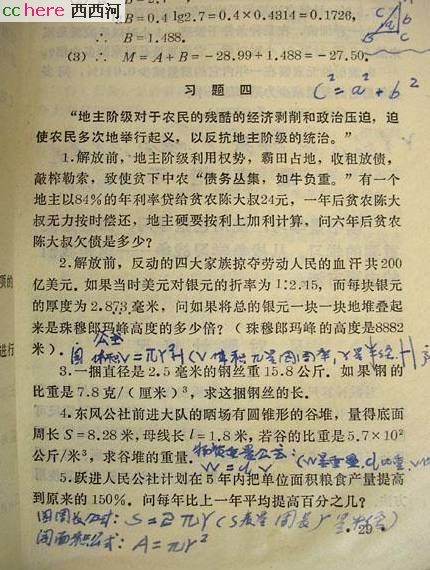 cchere 西西河
B=0.4 lg2.7=0.4×0.4314=0.1726,
∴ B=1.488.
(3) ∴ M=A+B=-28.99+1.488=-27.50.
c
a
b
c
习题四
c²=a²+b²
“地主阶级对于农民的残酷的经济剥削和政治压迫，迫
使农民多次地举行起义，以反抗地主阶级的统治。”
1.解放前，地主阶级利用权势，霸田占地，收租放债，
敲榨勒索，致使贫下中农“债务丛集，如牛负重。”有一个
地主以84%的年利率贷给贫农陈大叔24元，一年后贫农陈大
叔无力按时偿还，地主硬要按利上加利计算，问六年后贫农
陈大叔欠债是多少？
2.解放前，反动的四大家族掠夺劳动人民的血汗共200
亿美元。如果当时美元对银元的折率为1:2.15，而每块银元
的厚度为2.873毫米，问如果将总的银元一块一块地堆叠起
来是珠穆郎玛峰高度的多少倍？（珠穆郎玛峰的高度是8882
米）.
公式
3.一捆直径是2.5毫米的钢丝重15.8公斤。如果钢的
比重是7.8克/（厘米）³，求这捆钢丝的长。
4.东风公社前进大队的晒场有圆锥形的谷堆，量得底面
周长S=8.28米，母线长l=1.8米，若谷的比重是5.7×10²
公斤/米³，求谷堆的重量.
W=d v
5.跃进人民公社计划在5年内把单位面积粮食产量提高
到原来的150%。问每年比上一年平均提高百分之几？
圆周长公式: S=2πr (S表是周长 r是半径)
圆面积公式: A=πr²
·29·